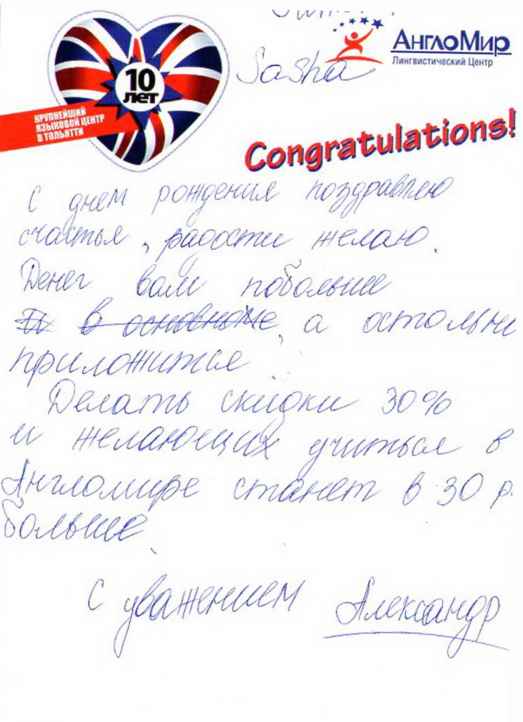 10
лет
КРУПНЕЙШИЙ
ЯЗЫКОВОЙ ЦЕНТР
В ТОЛЬЯТТИ
АнглоМир
Лингвистический Центр
Sasha
Congratulations!
С днем рождения поздравляю
счастья, радости желаю.
Денег вам побольше
в основном, а остольн
приложится
Делать скидки 30%
и желающих учиться в
Англомире станет в 30 р.
больше
С уважением Александр